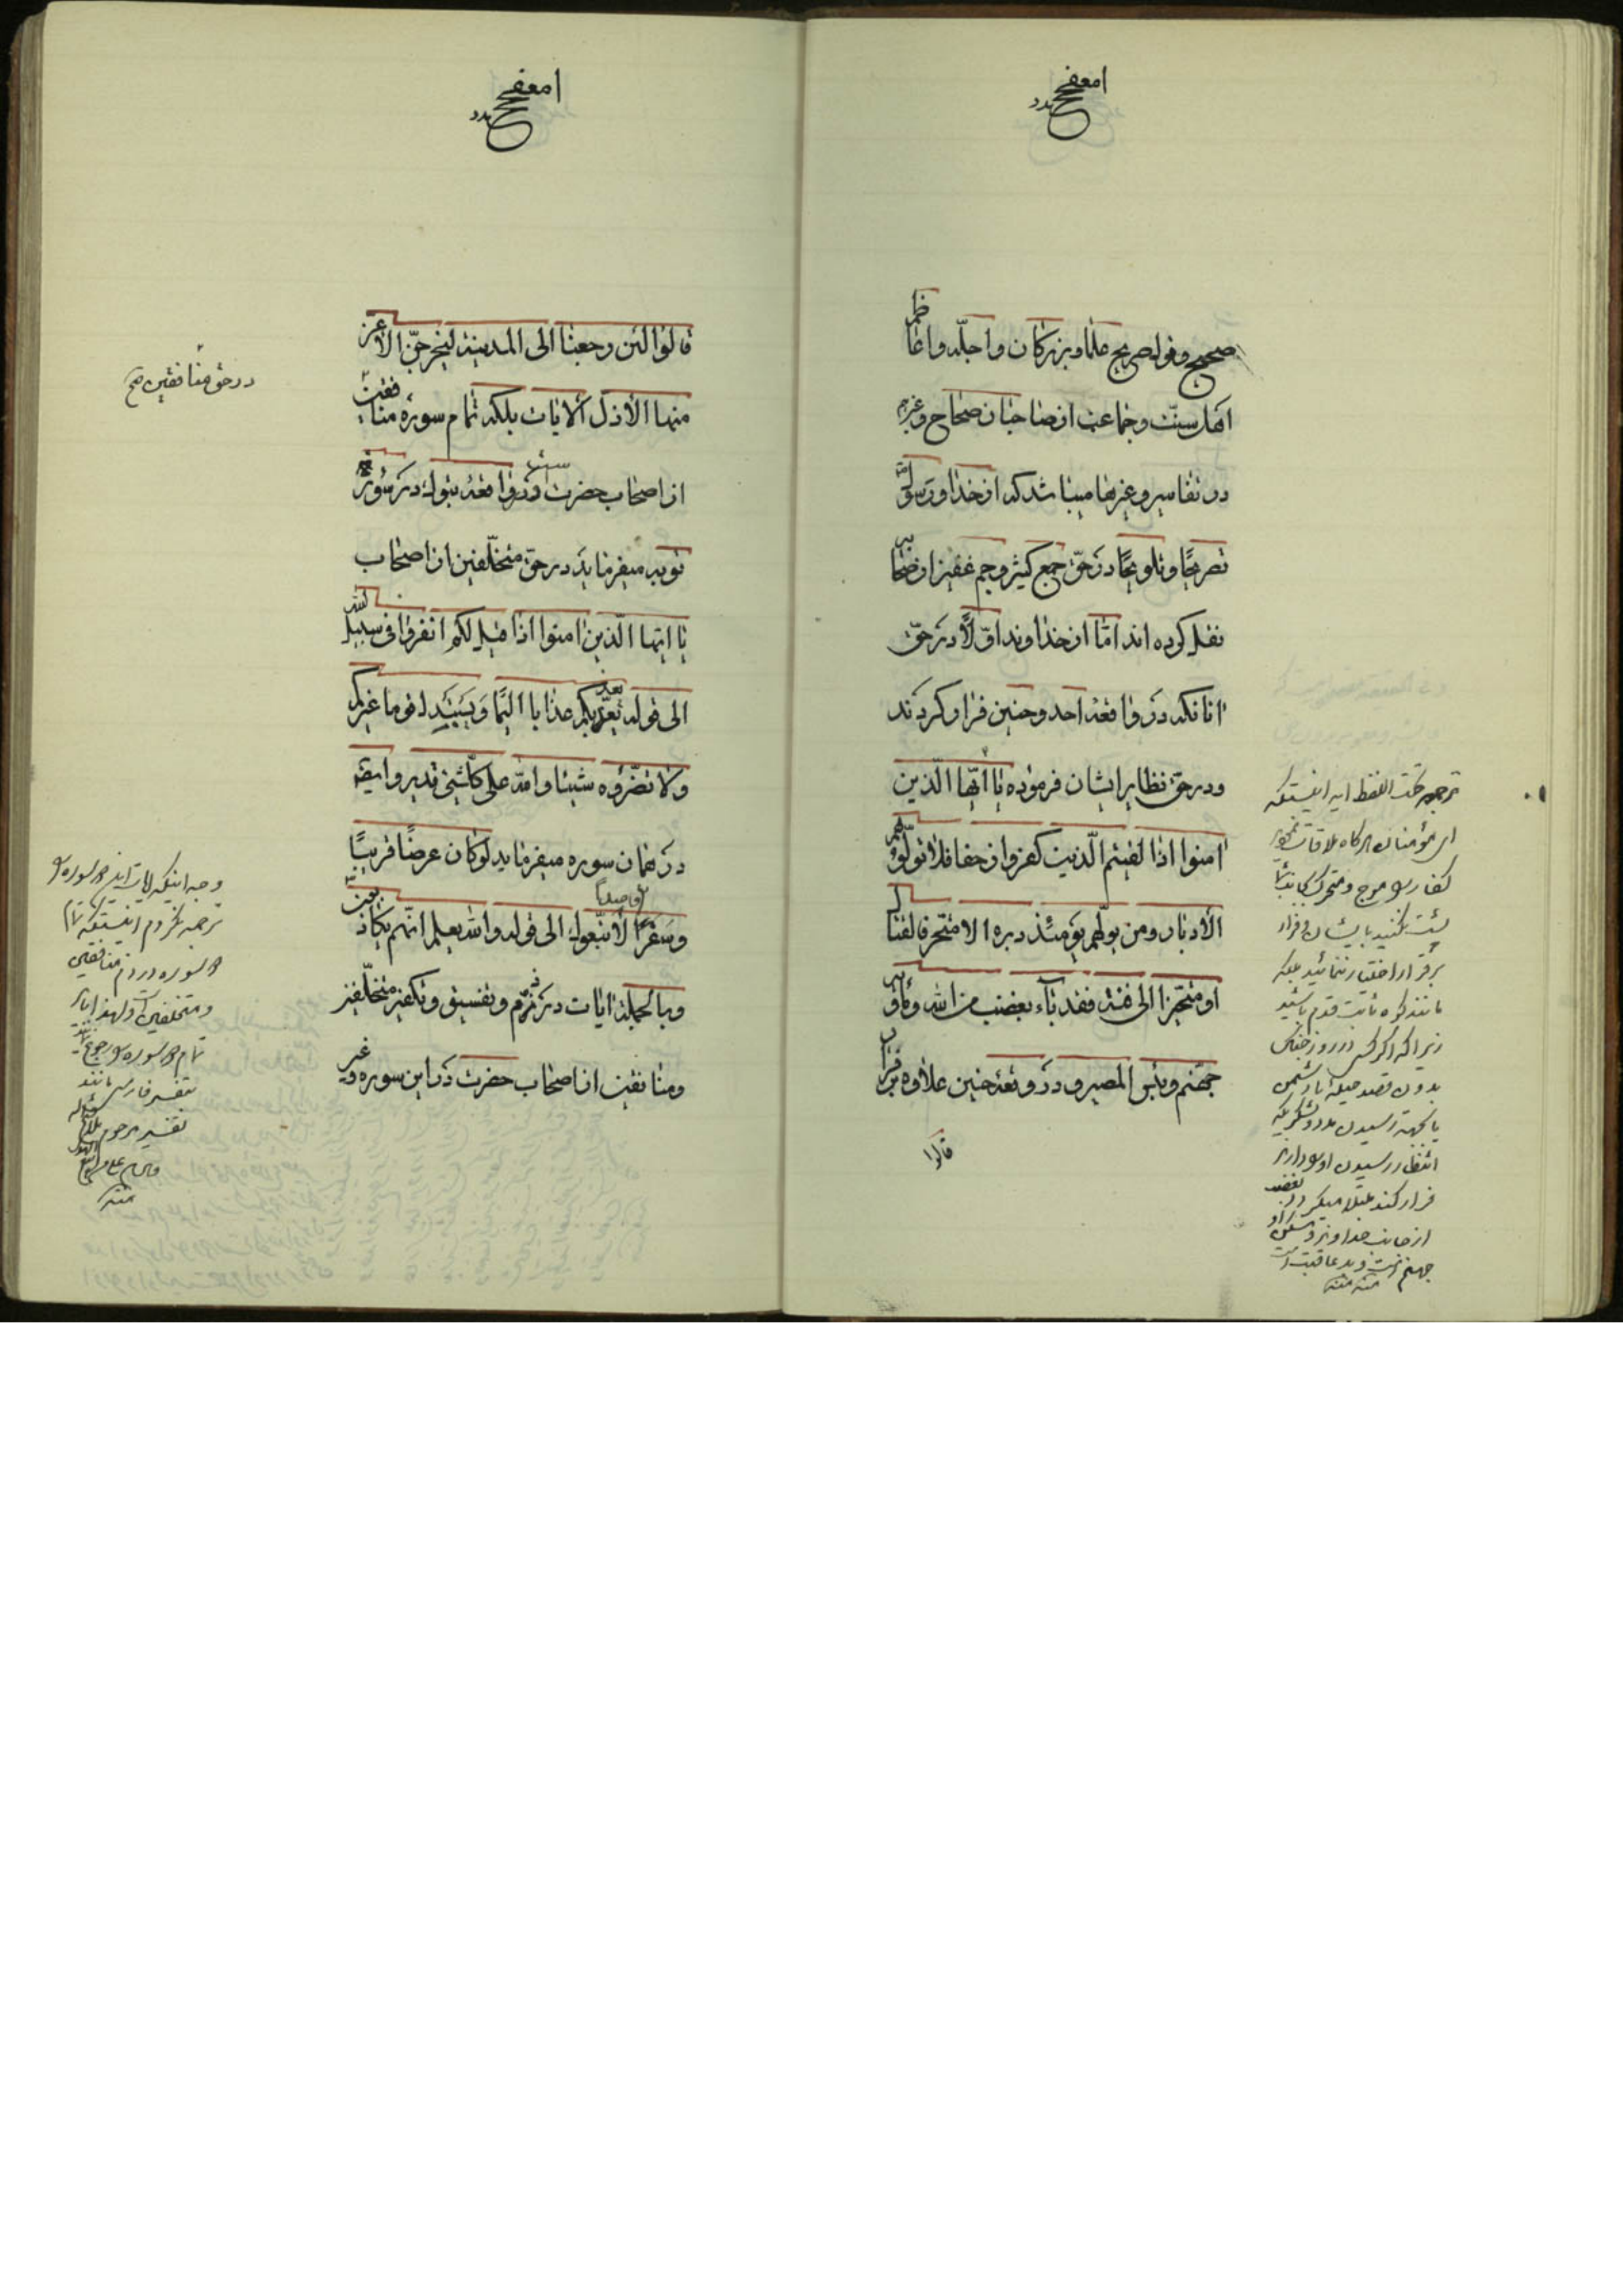 صحیح و قول صریح علما و بزرگان و اجلّه و اعاظم
اهل سنّت و جماعت از صاحبان صحاح و غیرهم
در تفاسیر و غیرها مبیناشد که از خدا و رسول
تصریحًا و تلویحًا در حقّ جمع کثیر و جم غفیر از صحابه
نقل کرده اند امّا از خداوند اوّلاً در حقّ
انانکه در واقعه احد و حنین فرار کردند
و در حق نظایر ایشان فرموده یا ایّها الّذین
امنوا اذا لقیتم الّذین کفروا زحفا فلا تولّوهم
الأدبار و من یولّهم یومئذ دبره الا متحرفا لقتال
او متحیّزا الی فئة فقد بآء بغضب من الله و مأویه
جهّنم و بئس المصیر و در وقعه حنین علاوه بر فرار
قالوا
ترجمه تحت اللفظ ایه اینستکه
ای مؤمنان هرگاه ملاقات
کفار
پشت نکنید بایشان و فرار
بر قرار اختیار ننمائید بلکه
مانند کوه ثابت قدم باشید
زیرا که اگر کسی در روز جنگ
بدون قصد حیله با دشمن
یا بجهة رسیدن مدد
انتظار رسیدن او دارد
فرار کند مبتلا میگردد بغضب
از جانب خداوند و مسکن او
جهنم است و بد عاقبت است
منه
قالوا لئن رجعنا الی المدینة لیخرجنّ الأعز
منها الأذل الایات بلکه تمام سوره منافقین
در حق منافقین صح
از اصحاب حضرت است و در واقعه تبوک در سورۀ
توبه میفرماید در حقّ متخلّفین از اصحاب
یا ایّها الّذین امنوا اذا قیل لکم انفروا فی سبیل الله
الی قوله یعذّبکم عذابا الیمًا و یستبدل قوما غیرکم
و لا تضرّوه شیئا و الله علی کلّ شیئ قدیر و ایضًا
در همان سوره میفرماید لو کان عرضًا قریبًا
و سفرًا قاصدا لأتّبعوک الی قوله و الله یعلم انّهم لکاذبون
و بالجملة ایات در ذمّ و تفسیق و تکفیر متخلّفین
و منافقین از اصحاب حضرت در این سوره و غیر
وجه اینکه
ترجمه نکردم اینستکه تمام
سوره در ذم منافقین
و متخلفین
تمام سوره رجوع
بتفسیر فارسی مانند
تفسیر مرحوم
منه